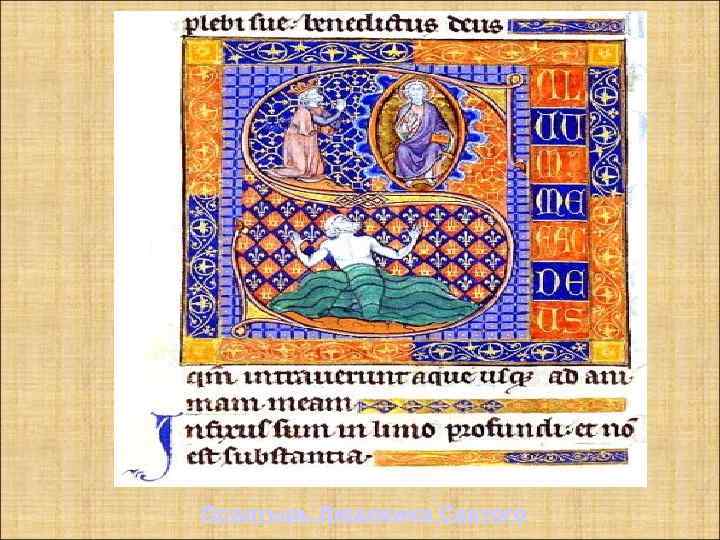 plebi sue. benedictus deus
AL
UU
M.
ME
FAC
DE
US
qm intraverunt aque usq3 ad ani
mam meam
Infixus sum in limo profundi. et nō
est substantia.
Псалтырь Людовика Святого